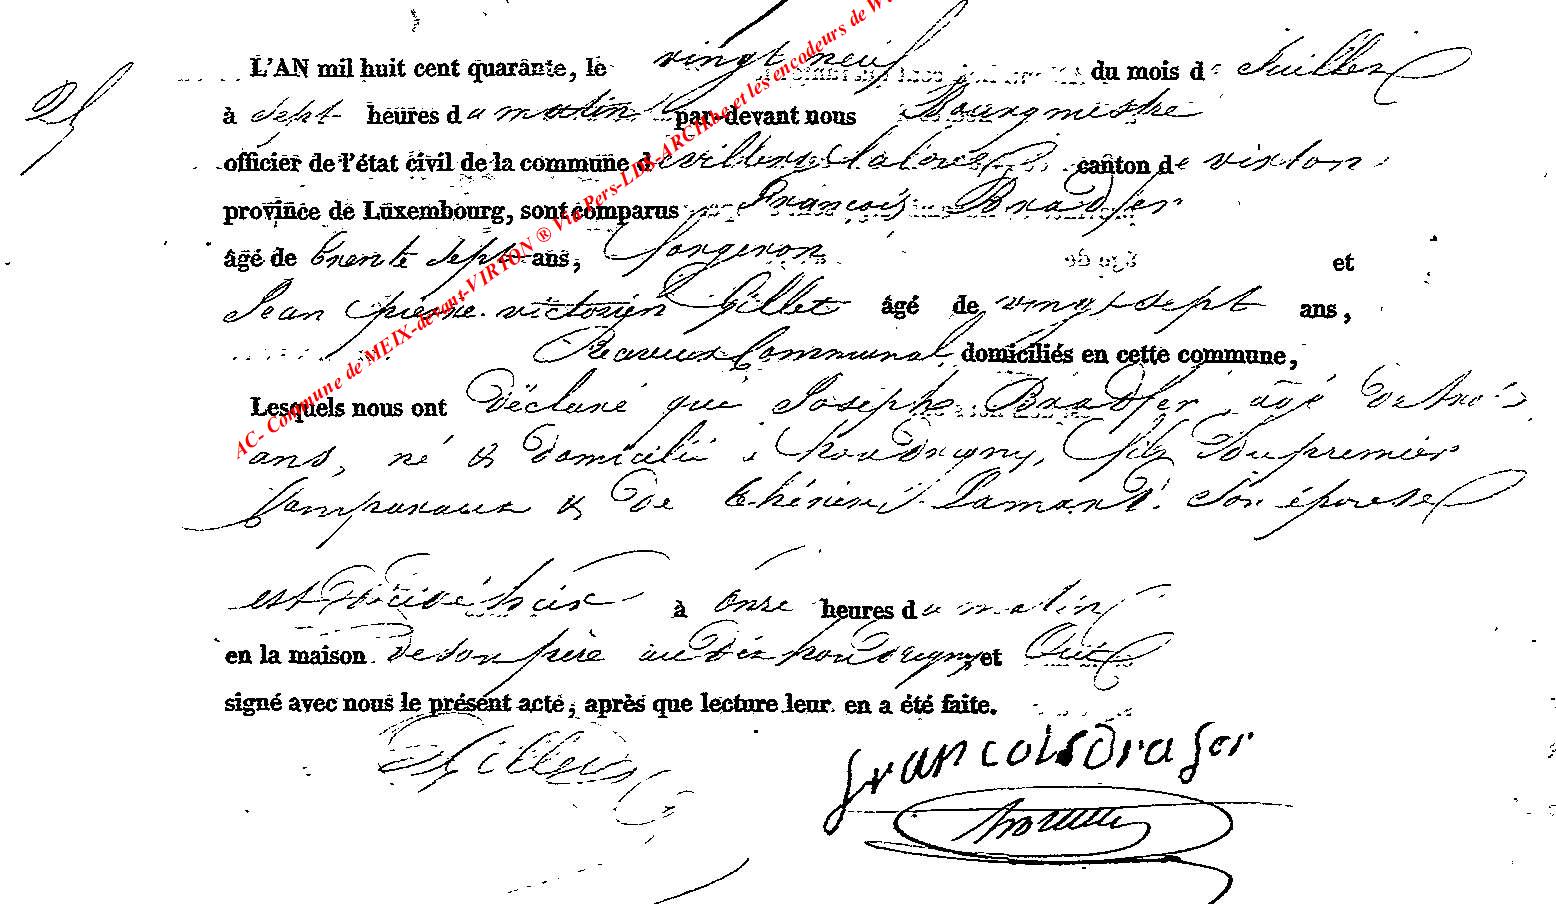 L'AN mil huit cent quarante, le vingt neuf du mois de Juillet
à Sept heures du matin par-devant nous Bourgmestre
officier de l'état civil de la commune de villers la loue canton de virton
province de Luxembourg, sont comparus François Bradfer
âgé de trente sept ans, forgeron et
Jean pierre victorien Gillet âgé de vingt sept ans,
Receveur Communal domiciliés en cette commune,
Lesquels nous ont Déclaré que Joseph Bradfer, agé de trois
ans, né & domicilié à houdrigny, fils Du premier
Comparant & De thérèse Lamand son épouse
est décédé hier à onze heures du matin
en la maison de son père au dit houdrigny, et ont
signé avec nous le présent acte, après que lecture leur en a été faite.
Gillet
francois Brafer
AC- Commune de MEIX-devant-VIRTON ® Via Pers-LUX-ARCHbe et les encadeurs de W